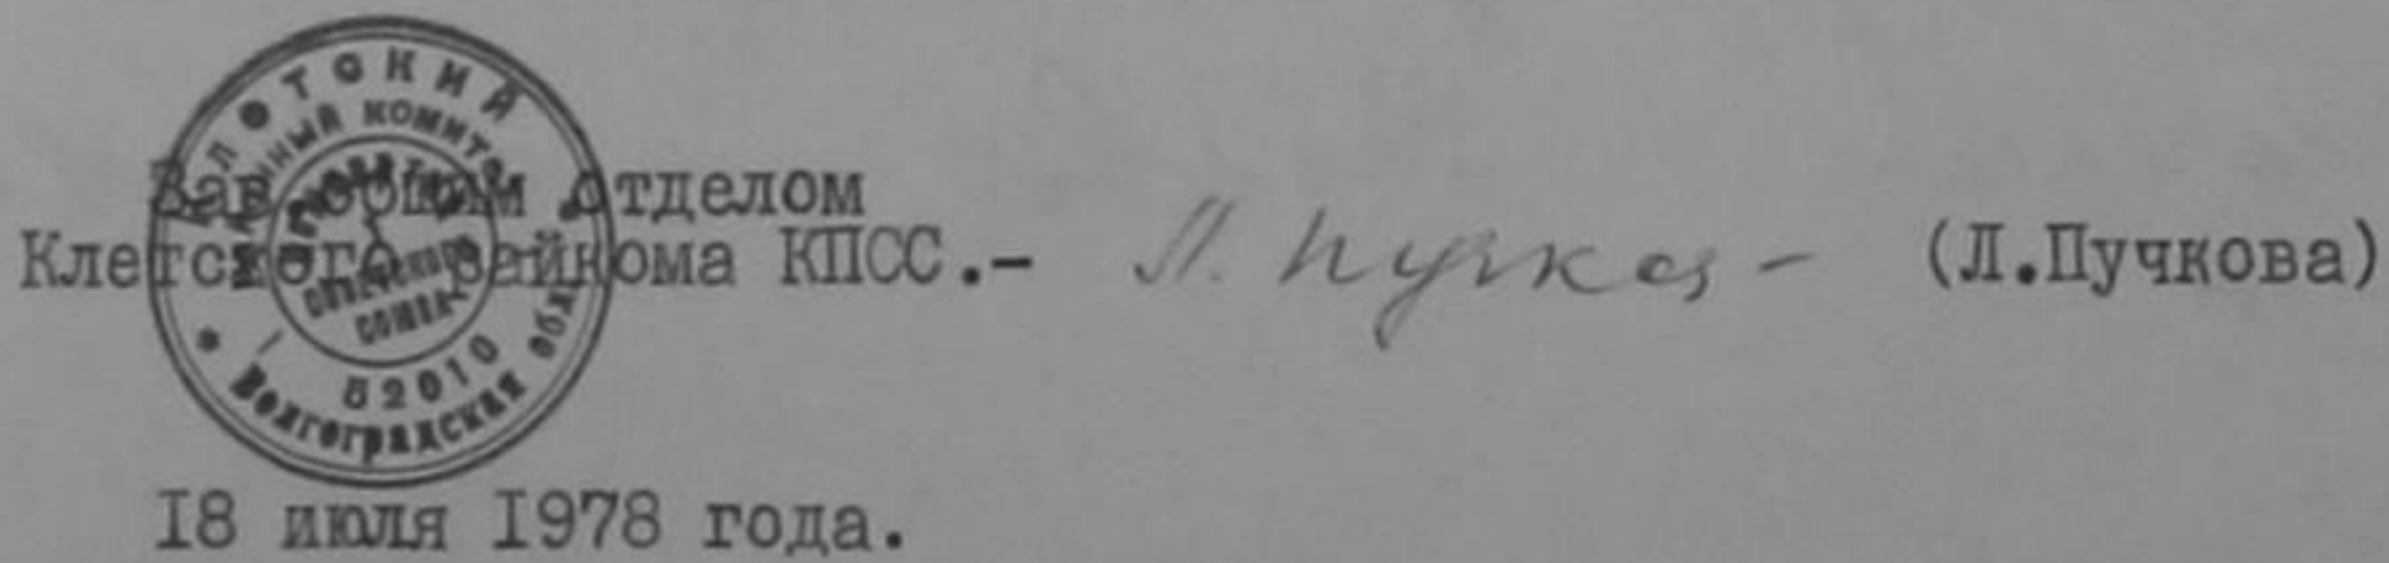 КЛЕТСКИЙ
РАЙОННЫЙ КОМИТЕТ
Советского
Союза
52010
* Волгоградская обл.
Зав общим отделом
Клетского райкома КПСС.-
Л. Пучков-
(Л.Пучкова)
18 июля 1978 года.